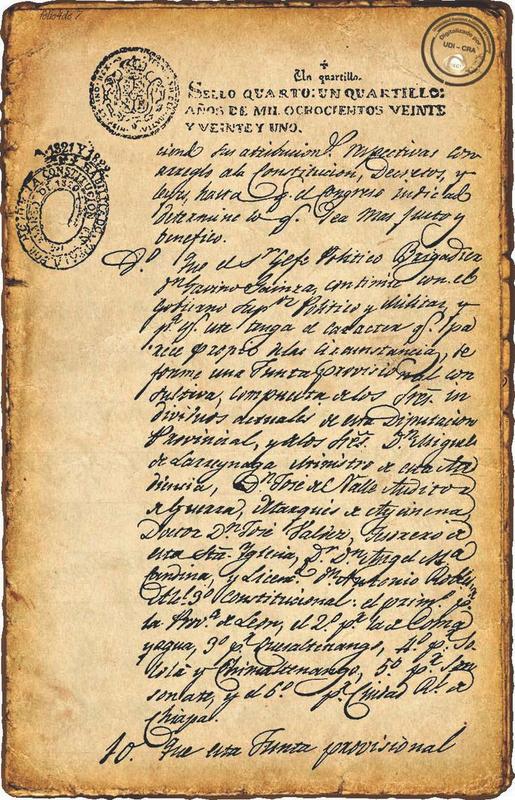 folio 4 de 7
Digitalizado por
UDI - CRA
Un quartillo.
SELLO QUARTO: UN QUARTILLO:
AÑOS DE MIL OCHOCIENTOS VEINTE
Y VEINTE Y UNO.
1821 Y 1822
LA CONSTITUCION
DE 1820
ciend sus atribucion.s respectivas con
arreglo a la Constitucion, Decretos, y
Leyes, hasta q.e el Congreso indicad
determine lo q.e sea mas justo y
benefico.
9.o Que el S.r Gefe Politico Brigadier
D.n Gavino Gainza, continúe con el
Gobierno Sup.or Politico y Militar, y
p.a q.e este tenga el caracter q.e pa
rece propio a las circunstancias, se
forme una Junta provisional con
sultiva, compuesta de los Sres. in
dividuos actuales de esta Diputacion
Provincial, y de los Sres. D.n Miguel
de Larreynaga Ministro de esta Au
diencia, D.n José del Valle Auditor
de Guerra, Marques de Aycinena
Doctor D.n José Valdez, Tesorero de
esta Sta. Yglesia, D.r D.n Angel Ma
Candina, y Licen.do D.n Antonio Robles
Alc.e 3.o Constitucional: el prim.o p.r
la Prov.a de Leon, el 2.o p.r la de Coma
yagua, 3.o p.r Quesaltenango, 4.o p.r So
lolá y Chimaltenango, 5.o p.r Son
sonate, y el 6.o p.r Ciudad R.l de
Chiapa.
10. Que esta Junta provisional